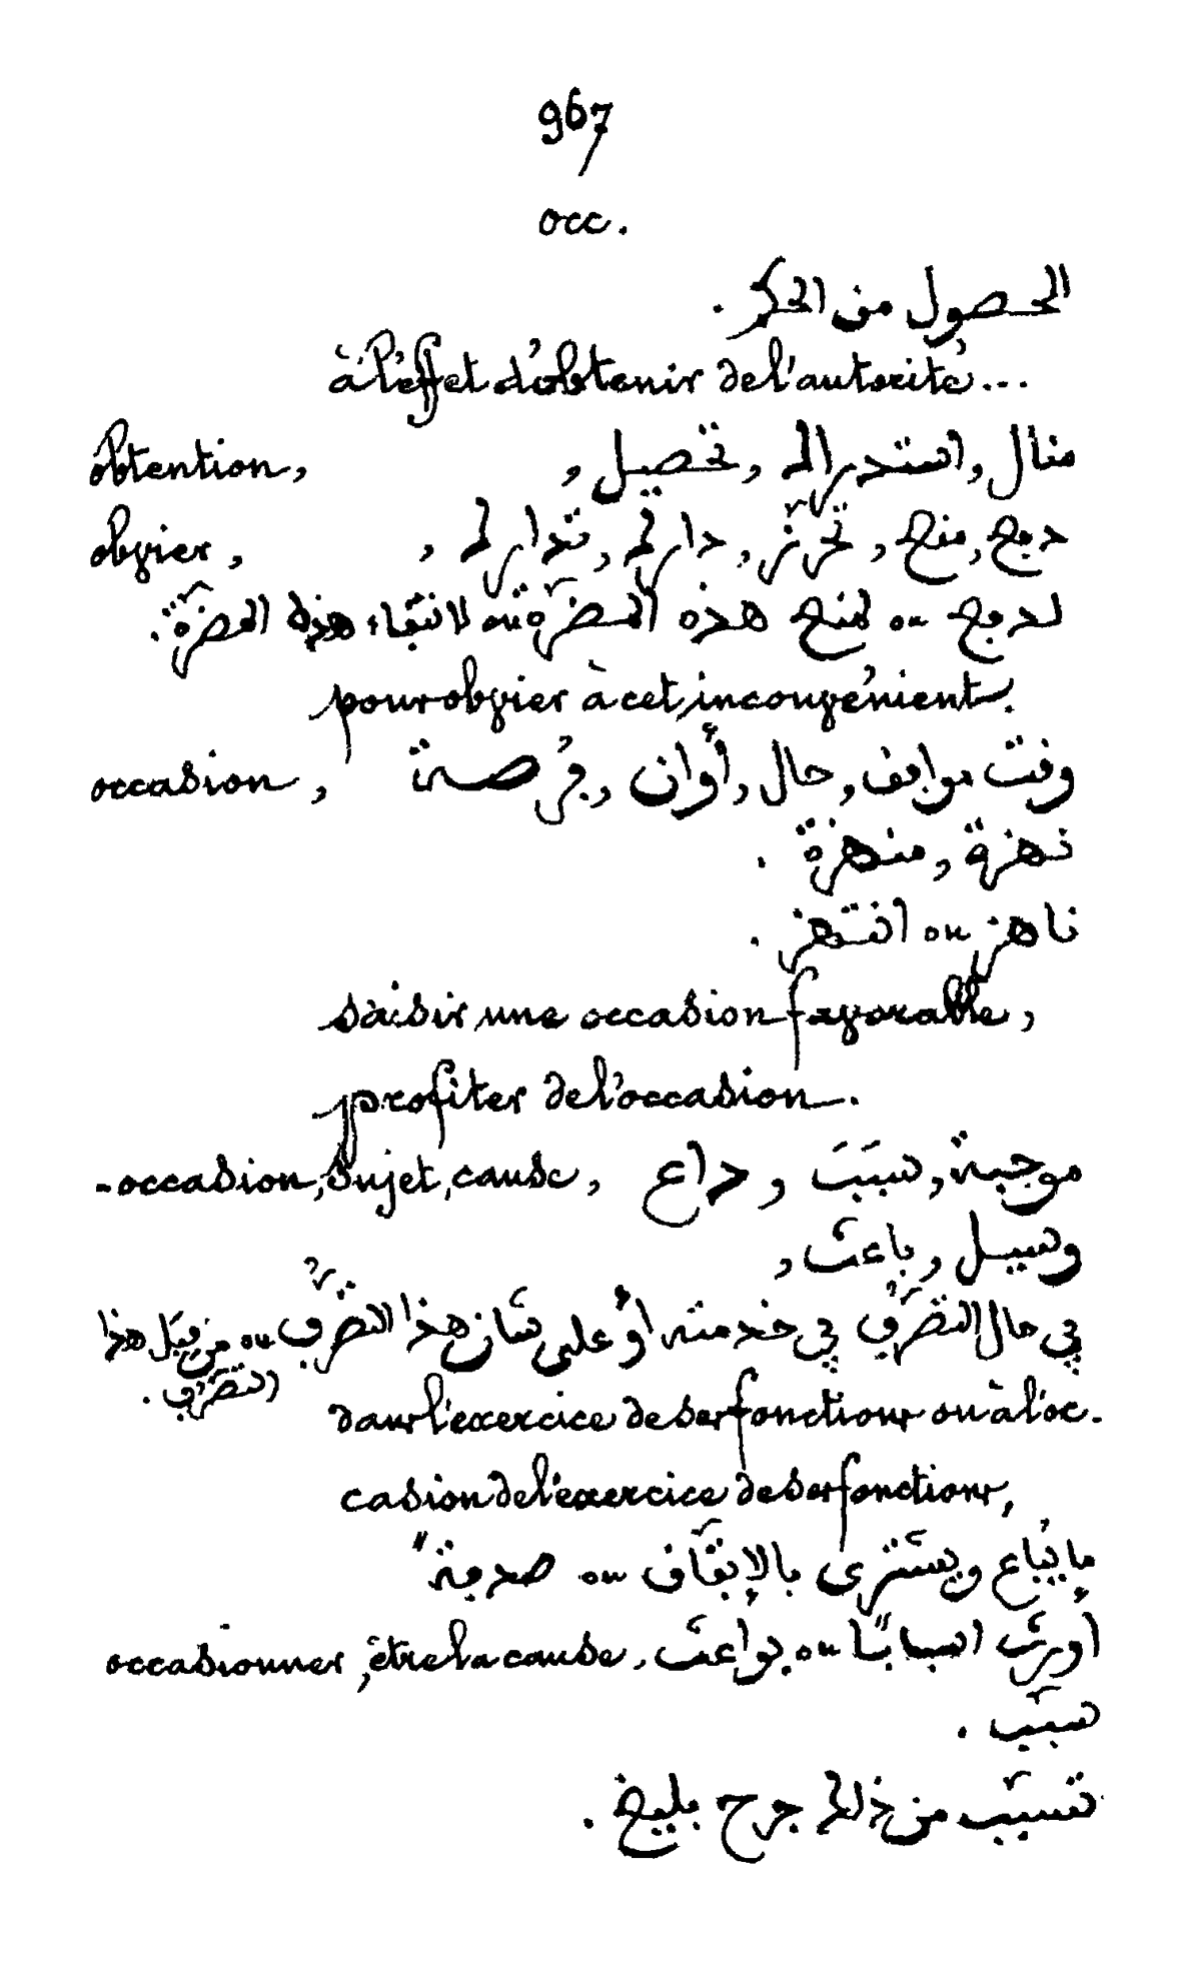 967
occ.
الحصول من الحكم .
à l'effet d'obtenir de l'autorité...
obtention, منال , استدراك , تحصيل ,
obvier, دفع , منع , تحرّز , دارك , تدارك ,
لدفع ou لمنع هذه المضرّة ou لاتقاء هذه المضرّة .
pour obvier à cet inconvénient.
occasion, وقت موافق , حال , أوان , فُرصة
نهزة , منهزة .
ناهز ou انتهز .
saisir une occasion favorable,
profiter de l'occasion.
-occasion, sujet, cause, موجبة , سَبَبَ , داع
وسبيل , باعث ,
في حال التصرّف في خدمته أو على شان هذا التصرّف ou من قبل هذا
التصرّف .
dans l'exercice de ses fonctions ou à l'oc.
casion de l'exercice de ses fonctions,
ما يُباع ويشترى بالإتفاق ou صدفة"
occasionner, être la cause, أورث اسبابًا ou بواعث
سبّب .
تسبّب من ذلك جرح بليغ .